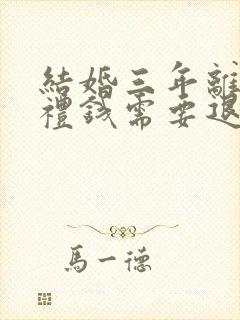 結婚三年離
禮錢需要退
馬一德